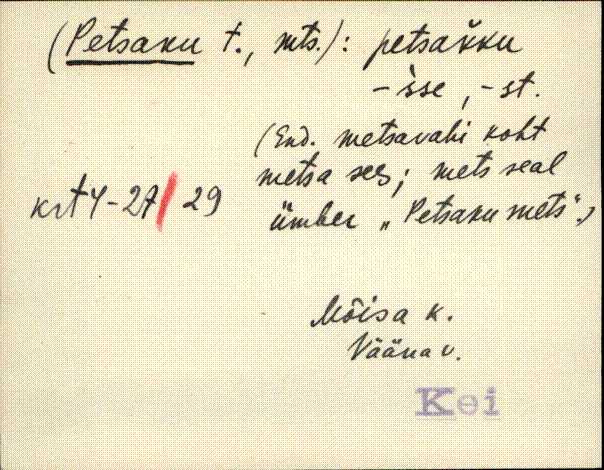 (Petsaku t., mts.): petsakku
-`sse, -st.
(End. metsavahi koht
metsa sees; mets seal
ümber „Petsaku mets".)
krt 4-27/29
Mõisa k.
Vääna v.
Kei